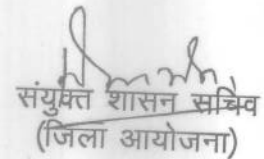 संयुक्ति शासन सचिव
(जिला आयोजना)